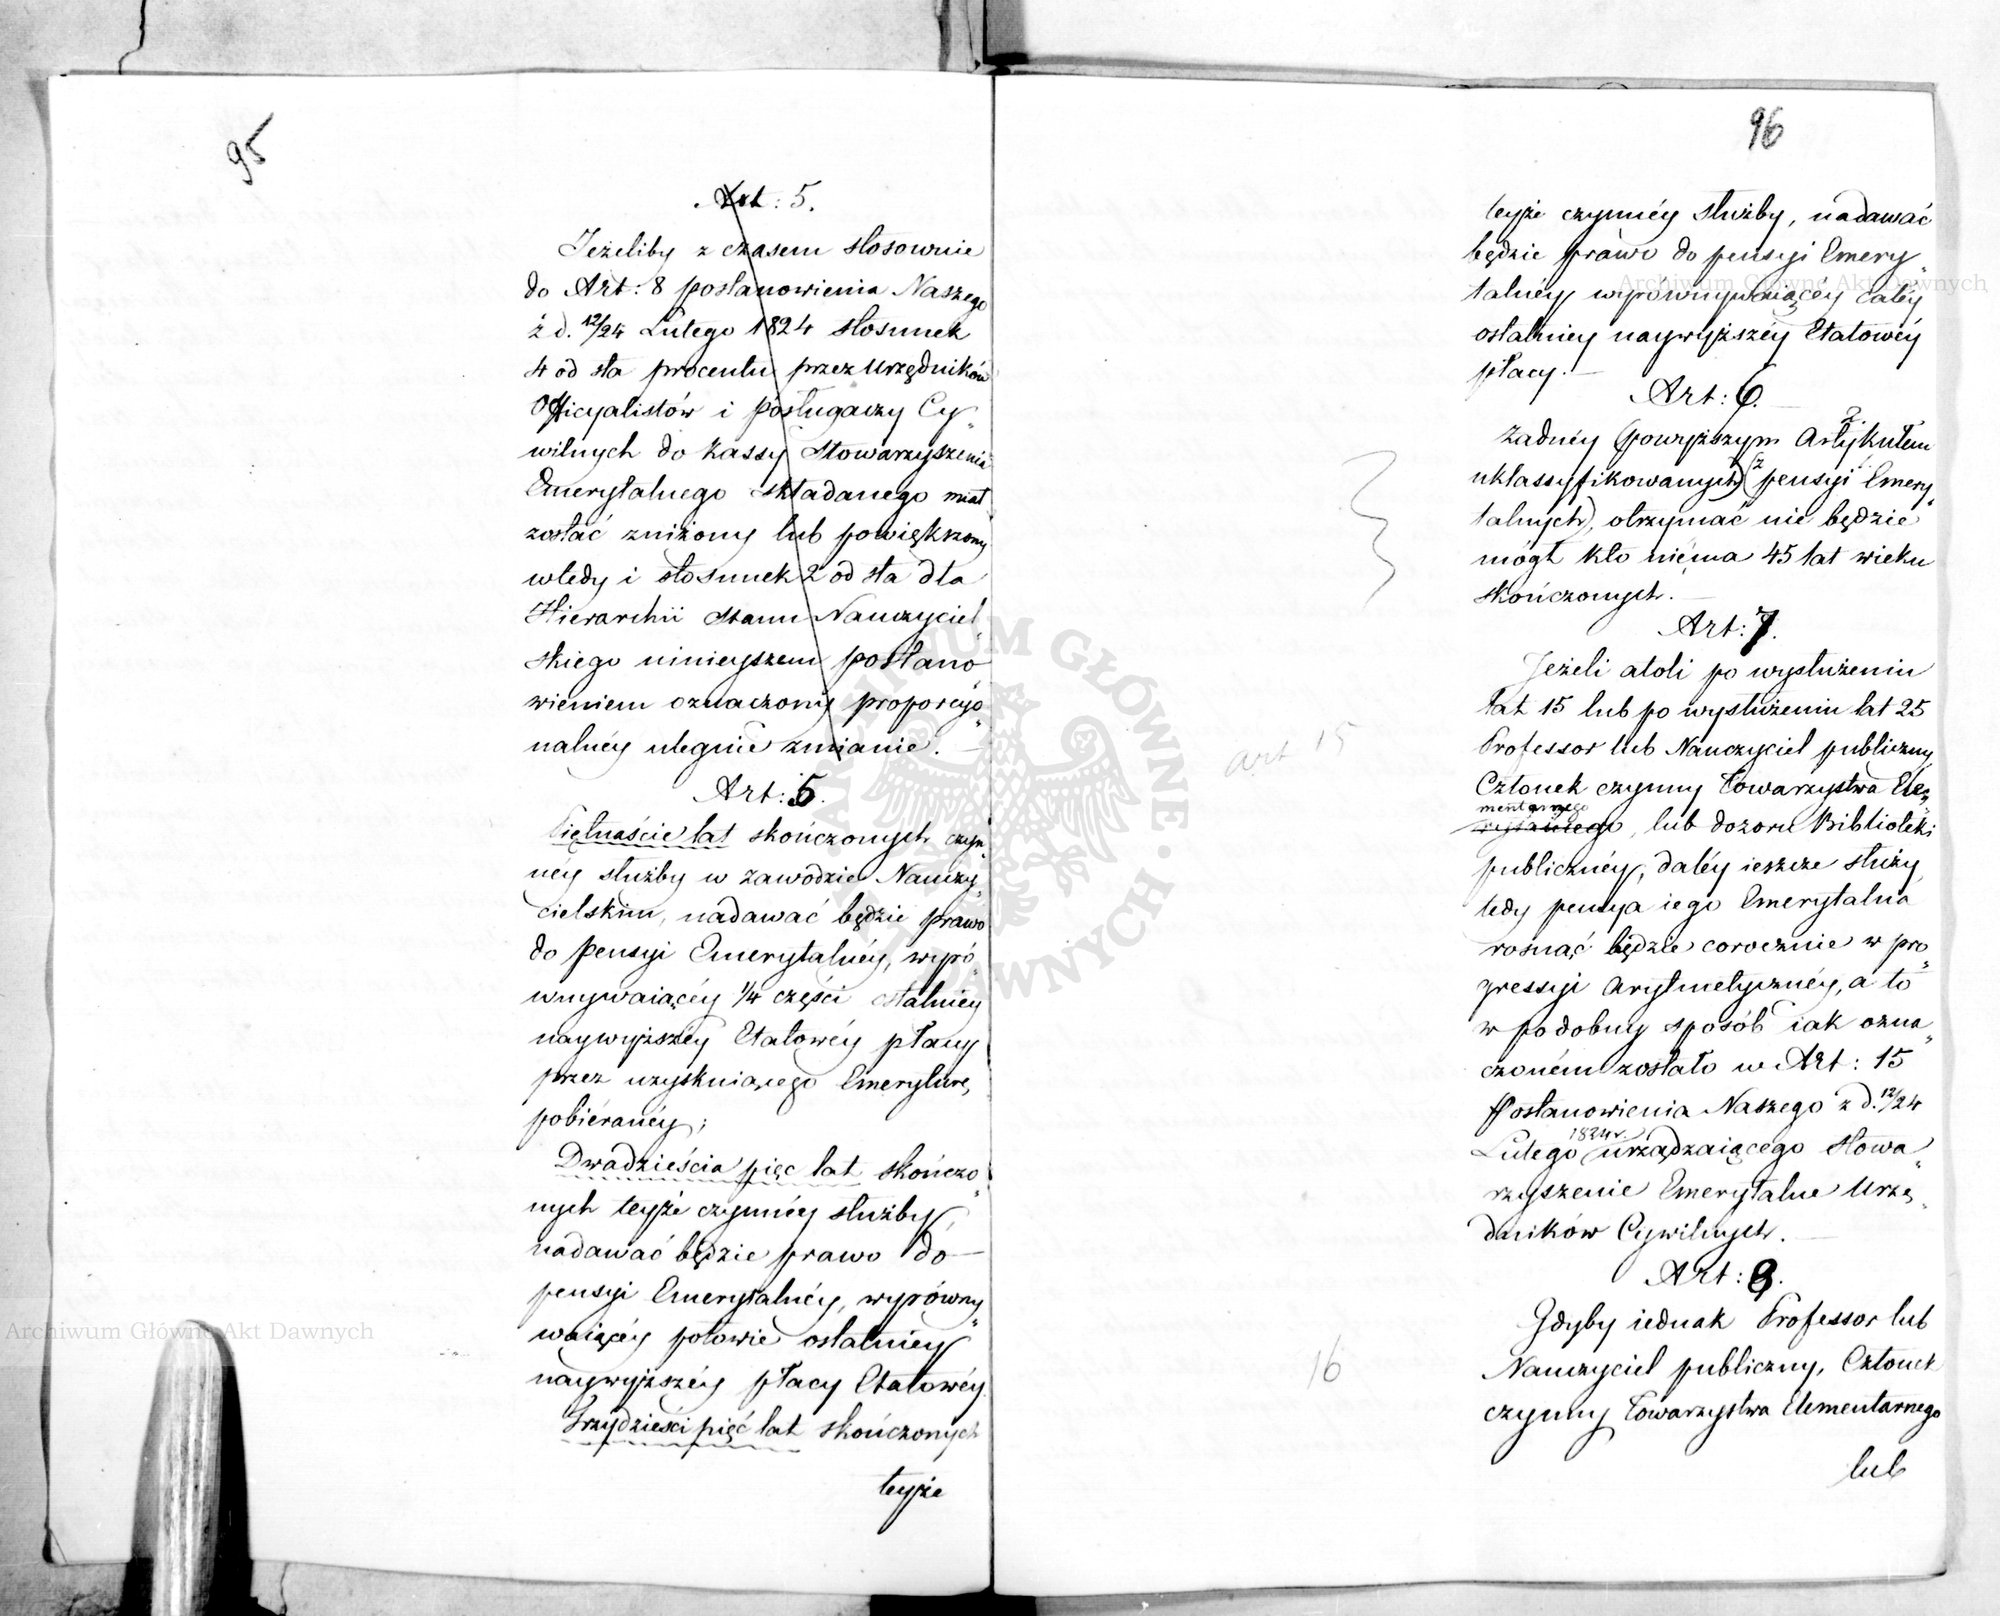 95
Art: 5.
Jeżeliby z czasem stosownie
do Art: 8 postanowienia Naszego
z d. 12/24 Lutego 1824 stosunek
4 od sta procentu przez Urzędników
Officyalistów i Posługaczy Cy„
wilnych do Kassy Stowarzyszenia
Emerytalnego składanego miał
zostać zniżony lub powiększony
wtedy i stosunek 2 od sta dla
Hierarchii stanu Nauczyciel„
skiego ninieyszem postano„
wieniem oznaczony proporcyo„
nalnéy ulegnie zmianie. —
Art: 5.
Piętnaście lat skończonych czyn„
néy służby w zawodzie Nauczy„
cielskim, nadawać będzie prawo
do Pensyi Emerytalnéy, wyró„
wnywaiącéy 1/4 części ostatniey
naywyższéy Etatowéy płacy
przez uzyskuiącego Emeryturę,
pobiéranéy;
Dwadzieścia pięc lat skończo„
nych teyże czynnéy służby,
nadawać będzie prawo do —
pensyi Emerytalnéy, wyrówny„
waiącéy połowie ostatniey
naywyższéy płacy Etatowéy.
Trzydzieści pięć lat skończonych
teyże
96
teyże czynnéy służby, nadawać
będzie prawo do pensyi Emery„
talnéy wyrównywaiącéy całéy
ostatniey naywyższéy Etatowéy
płacy. —
Art: 6.
Żadnéy (powyższym Artykułem
uklassyfikowanych) (z pensyi Emery„
talnych), otrzymać nie będzie
mógł kto niéma 45 lat wieku
skończonych. —
Art: 7.
Jeżeli atoli po wysłużeniu
lat 15 lub po wysłużeniu lat 25
Professor lub Nauczyciel publiczny
Członek czynny Towarzystwa Ele„
mentarnego
, lub dozoru Biblioteki
publicznéy, daléy ieszcze służy,
tedy pensya iego Emerytalna
rosnąć będzie corocznie w pro„
gressyi Arytmetycznéy, a to
w podobny sposób iak ozna„
czoném zostało w Art: 15
Postanowienia Naszego z d. 12/24
1824 r.
Lutego urządzaiącego Stowa„
rzyszenie Emerytalne Urzę„
dników Cywilnych. —
art 15
Art: 8.
Gdyby iednak Professor lub
Nauczyciel publiczny, Członek
czynny Towarzystwa Elementarnego
16
lub
Archiwum Główne Akt Dawnych
Archiwum Główne Akt Dawnych
ARCHIWUM GŁÓWNE AKT DAWNYCH